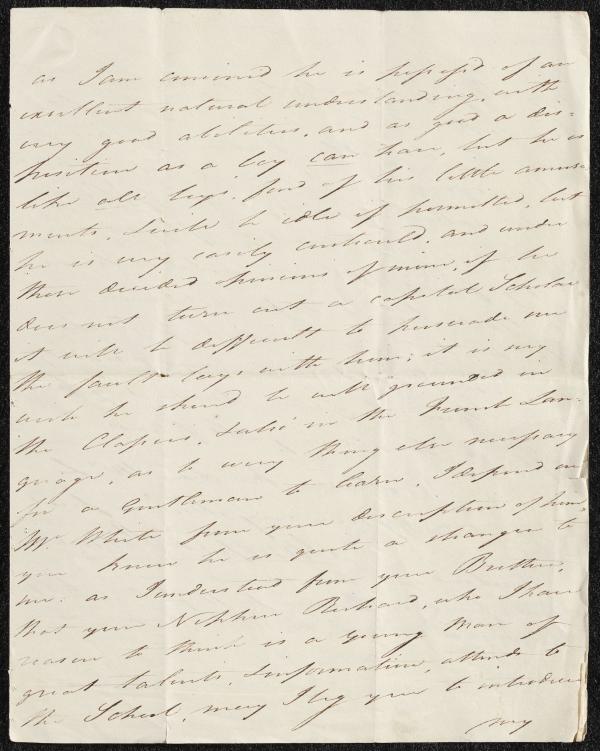 as I am convinced he is possess'd of an
excellent natural understanding, with
very good abilities, and as good a dis-
position as a boy can have, but he is
like all boys, fond of his little amuse
ments, & will be idle if permitted, but
he is very easily controul'd, and under
these decided opinions of mine, if he
does not turn out a capital Scholar
it will be difficult to persuade me
the fault lays with him; it is my
wish he should be well grounded in
the Classics, & also in the French Lan-
guage, as to every thing else necessary
for a Gentleman to learn, I depend on
Mr. White from your description of him,
you know he is quite a stranger to
me. as I understood from your Brother,
that your Nephew Richard, who I have
reason to think is a young Man of
great talents, & information, attends to
the School, may I beg you to introduce
my